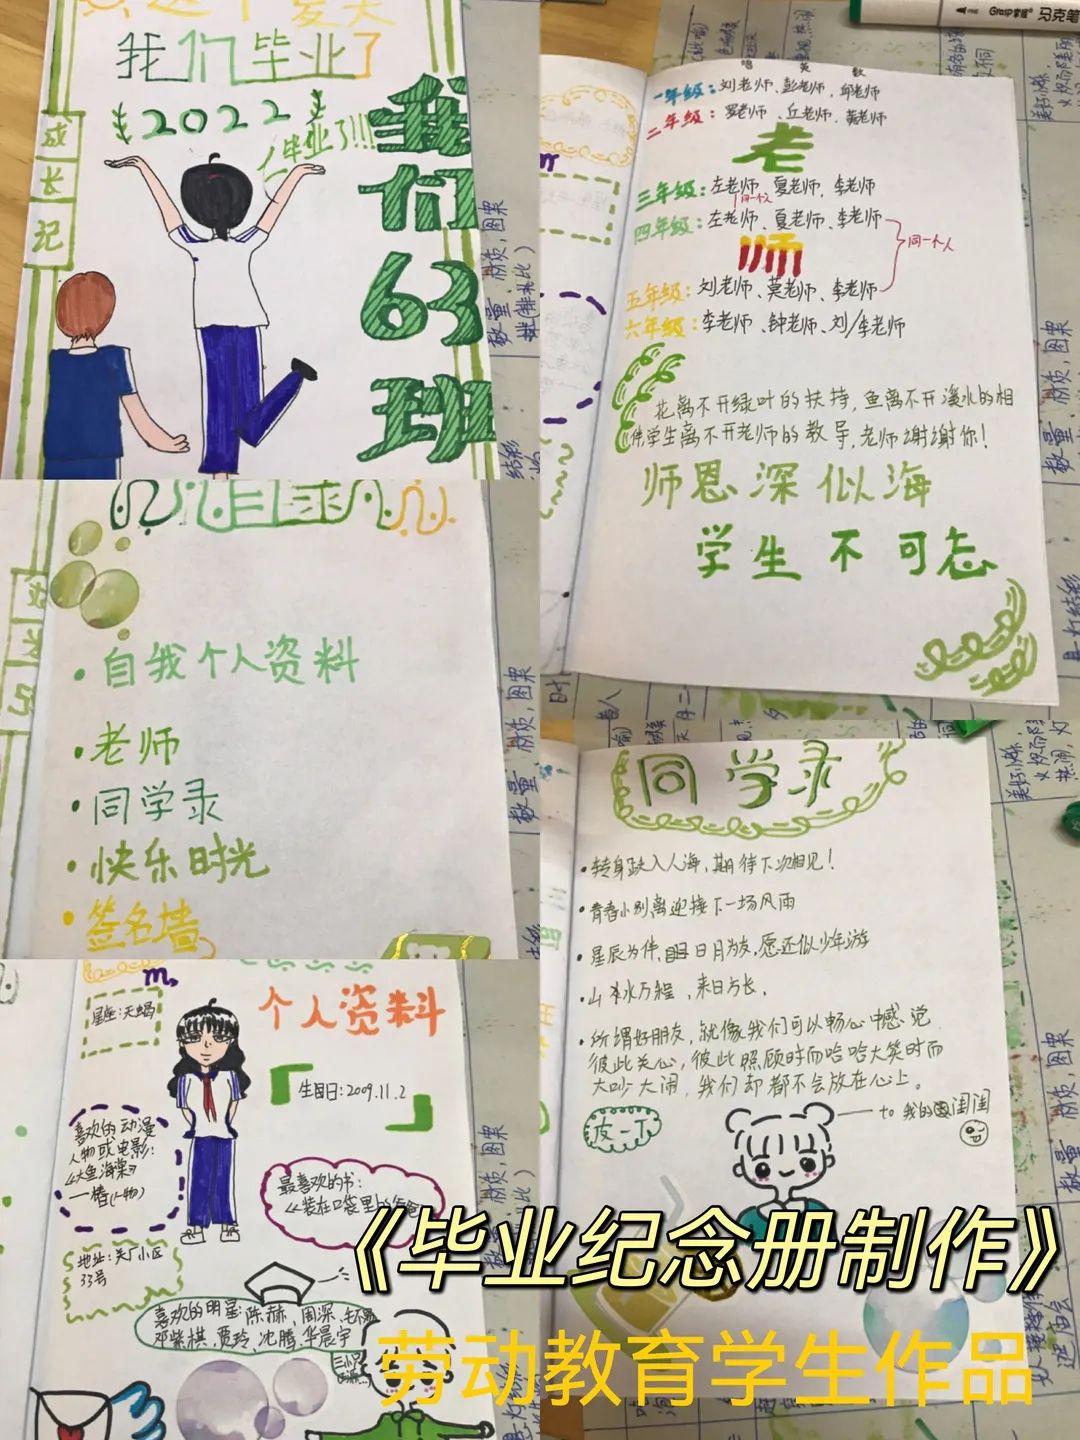 这个夏天
我们毕业了
2022
毕业了!!!
成长记
我们63班
目录
·自我个人资料
·老师
·同学录
·快乐时光
·签名墙
语 英 数
一年级:刘老师、彭老师、邱老师
二年级:罗老师、丘老师、黄老师
老
三年级:左老师、夏老师、李老师
同一个人
四年级:左老师、夏老师、李老师
师
同一个人
五年级:刘老师、莫老师、李老师
六年级:李老师、钟老师、刘/李老师
花离不开绿叶的扶持,鱼离不开溪水的相
伴学生离不开老师的教导,老师谢谢你!
师恩深似海
学生不可忘
同学录
·转身跃入人海,期待下次相见!
·青春小别离迎接下一场风雨
·星辰为伴,日月为友,愿还似少年游
·山水万程,来日方长.
·所谓好朋友,就像我们可以畅心中憾.说
彼此关心,彼此照顾时而哈哈大笑时而
大吵大闹,我们却都不会放在心上。
皮一下
to 我的闺闺
个人资料
星座:天蝎
生日:2009.11.2
喜欢的动漫
人物或电影:
《大鱼海棠》
一椿(人物)
最喜欢的书:
《装在口袋里的爸爸
地址:关厂小区
33号
喜欢的明星:陈赫、周深、毛不易
邓紫棋、贾玲、沈腾、华晨宇
《毕业纪念册制作》
劳动教育学生作品
数量,材质,图案
数量,材质,图案
马克笔